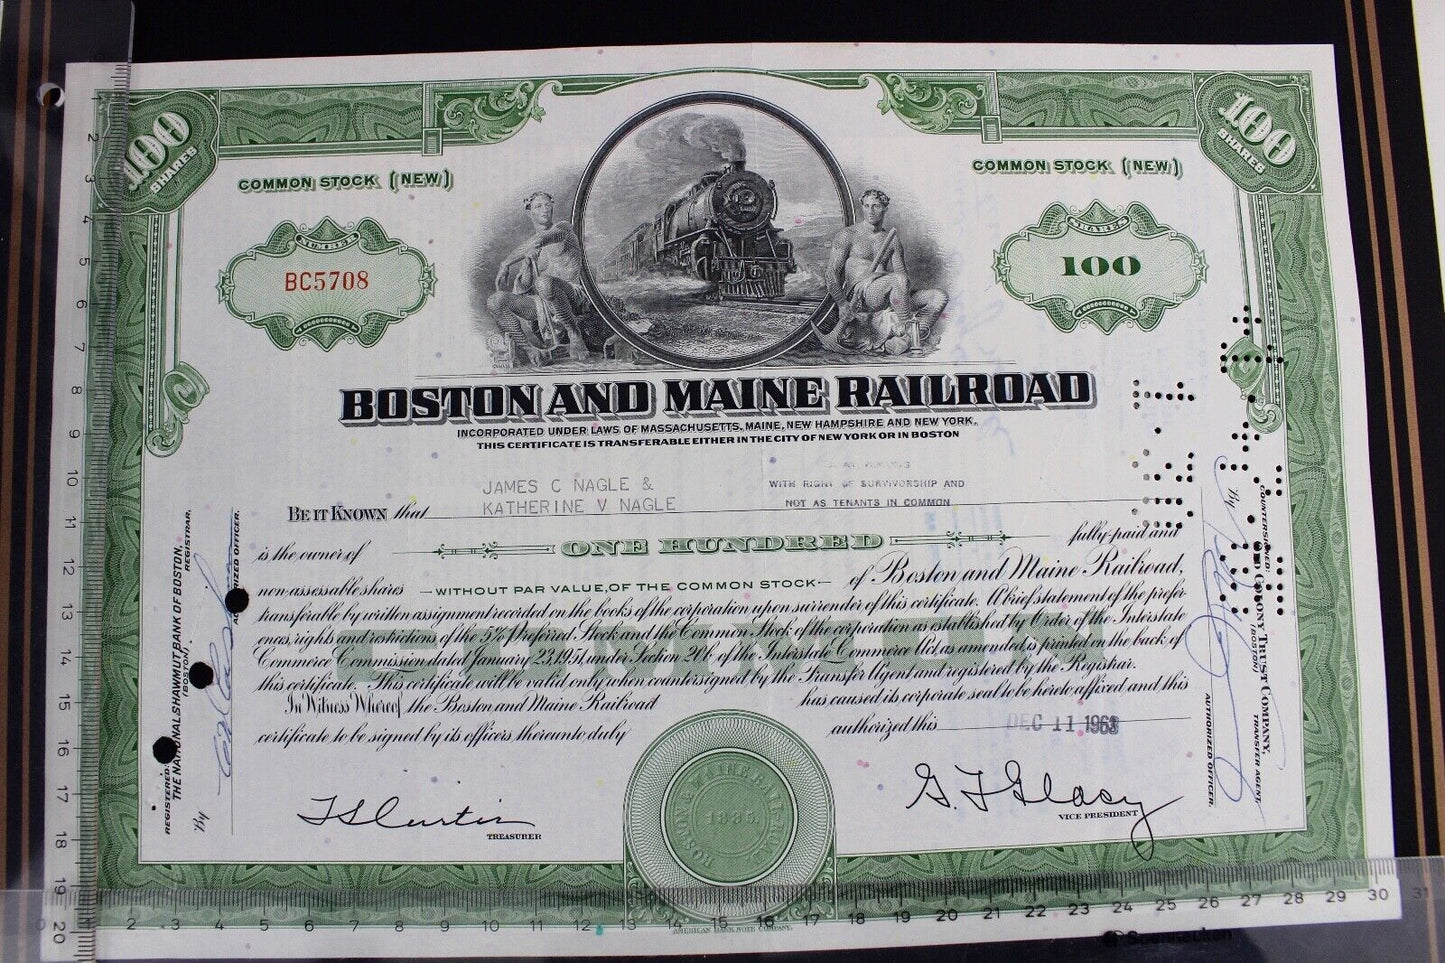 100
SHARES
100
SHARES
COMMON STOCK (NEW)
COMMON STOCK (NEW)
NUMBER
BC5708
SHARES
100
BOSTON AND MAINE RAILROAD
INCORPORATED UNDER LAWS OF MASSACHUSETTS, MAINE, NEW HAMPSHIRE AND NEW YORK.
THIS CERTIFICATE IS TRANSFERABLE EITHER IN THE CITY OF NEW YORK OR IN BOSTON
JAMES C NAGLE &
WITH RIGHT OF SURVIVORSHIP AND
Be it Known that
KATHERINE V NAGLE
NOT AS TENANTS IN COMMON
is the owner of
ONE HUNDRED
fully-paid and
non-assessable shares
WITHOUT PAR VALUE, OF THE COMMON STOCK
of Boston and Maine Railroad,
transferable by written assignment recorded on the books of the corporation upon surrender of this certificate. A brief statement of the prefer-
ences, rights and restrictions of the 5% Preferred Stock and the Common Stock of the corporation as established by Order of the Interstate
Commerce Commission dated January 23, 1951, under Section 20b of the Interstate Commerce Act, as amended, is printed on the back of
this certificate. This certificate will be valid only when countersigned by the Transfer Agent and registered by the Registrar.
In Witness Whereof the Boston and Maine Railroad
has caused its corporate seal to be hereto affixed and this
certificate to be signed by its officers thereunto duly
authorized this
DEC 11 1963
TREASURER
G. F. Glacy
VICE PRESIDENT
BOSTON & MAINE RAILROAD.
1835.
AMERICAN BANK NOTE COMPANY.
REGISTERED:
THE NATIONAL SHAWMUT BANK OF BOSTON,
(BOSTON)
REGISTRAR,
By
AUTHORIZED OFFICER.
COUNTERSIGNED:
OLD COLONY TRUST COMPANY,
(BOSTON)
TRANSFER AGENT,
By
AUTHORIZED OFFICER.
1
2
3
4
5
6
7
8
9
10
11
12
13
14
15
16
17
18
19
20
0 1 2 3 4 5 6 7 8 9 10 11 12 13 14 15 16 17 18 19 20 21 22 23 24 25 26 27 28 29 30 31